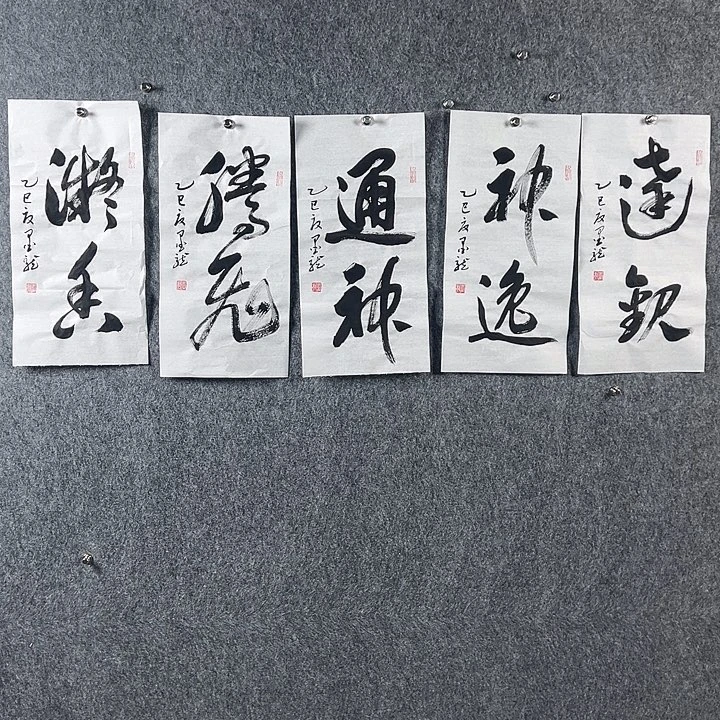 凝香
乙巳夏墨龍
騰飛
乙巳夏墨龍
通神
乙巳夏墨龍
神逸
乙巳夏墨龍
達觀
乙巳夏墨龍